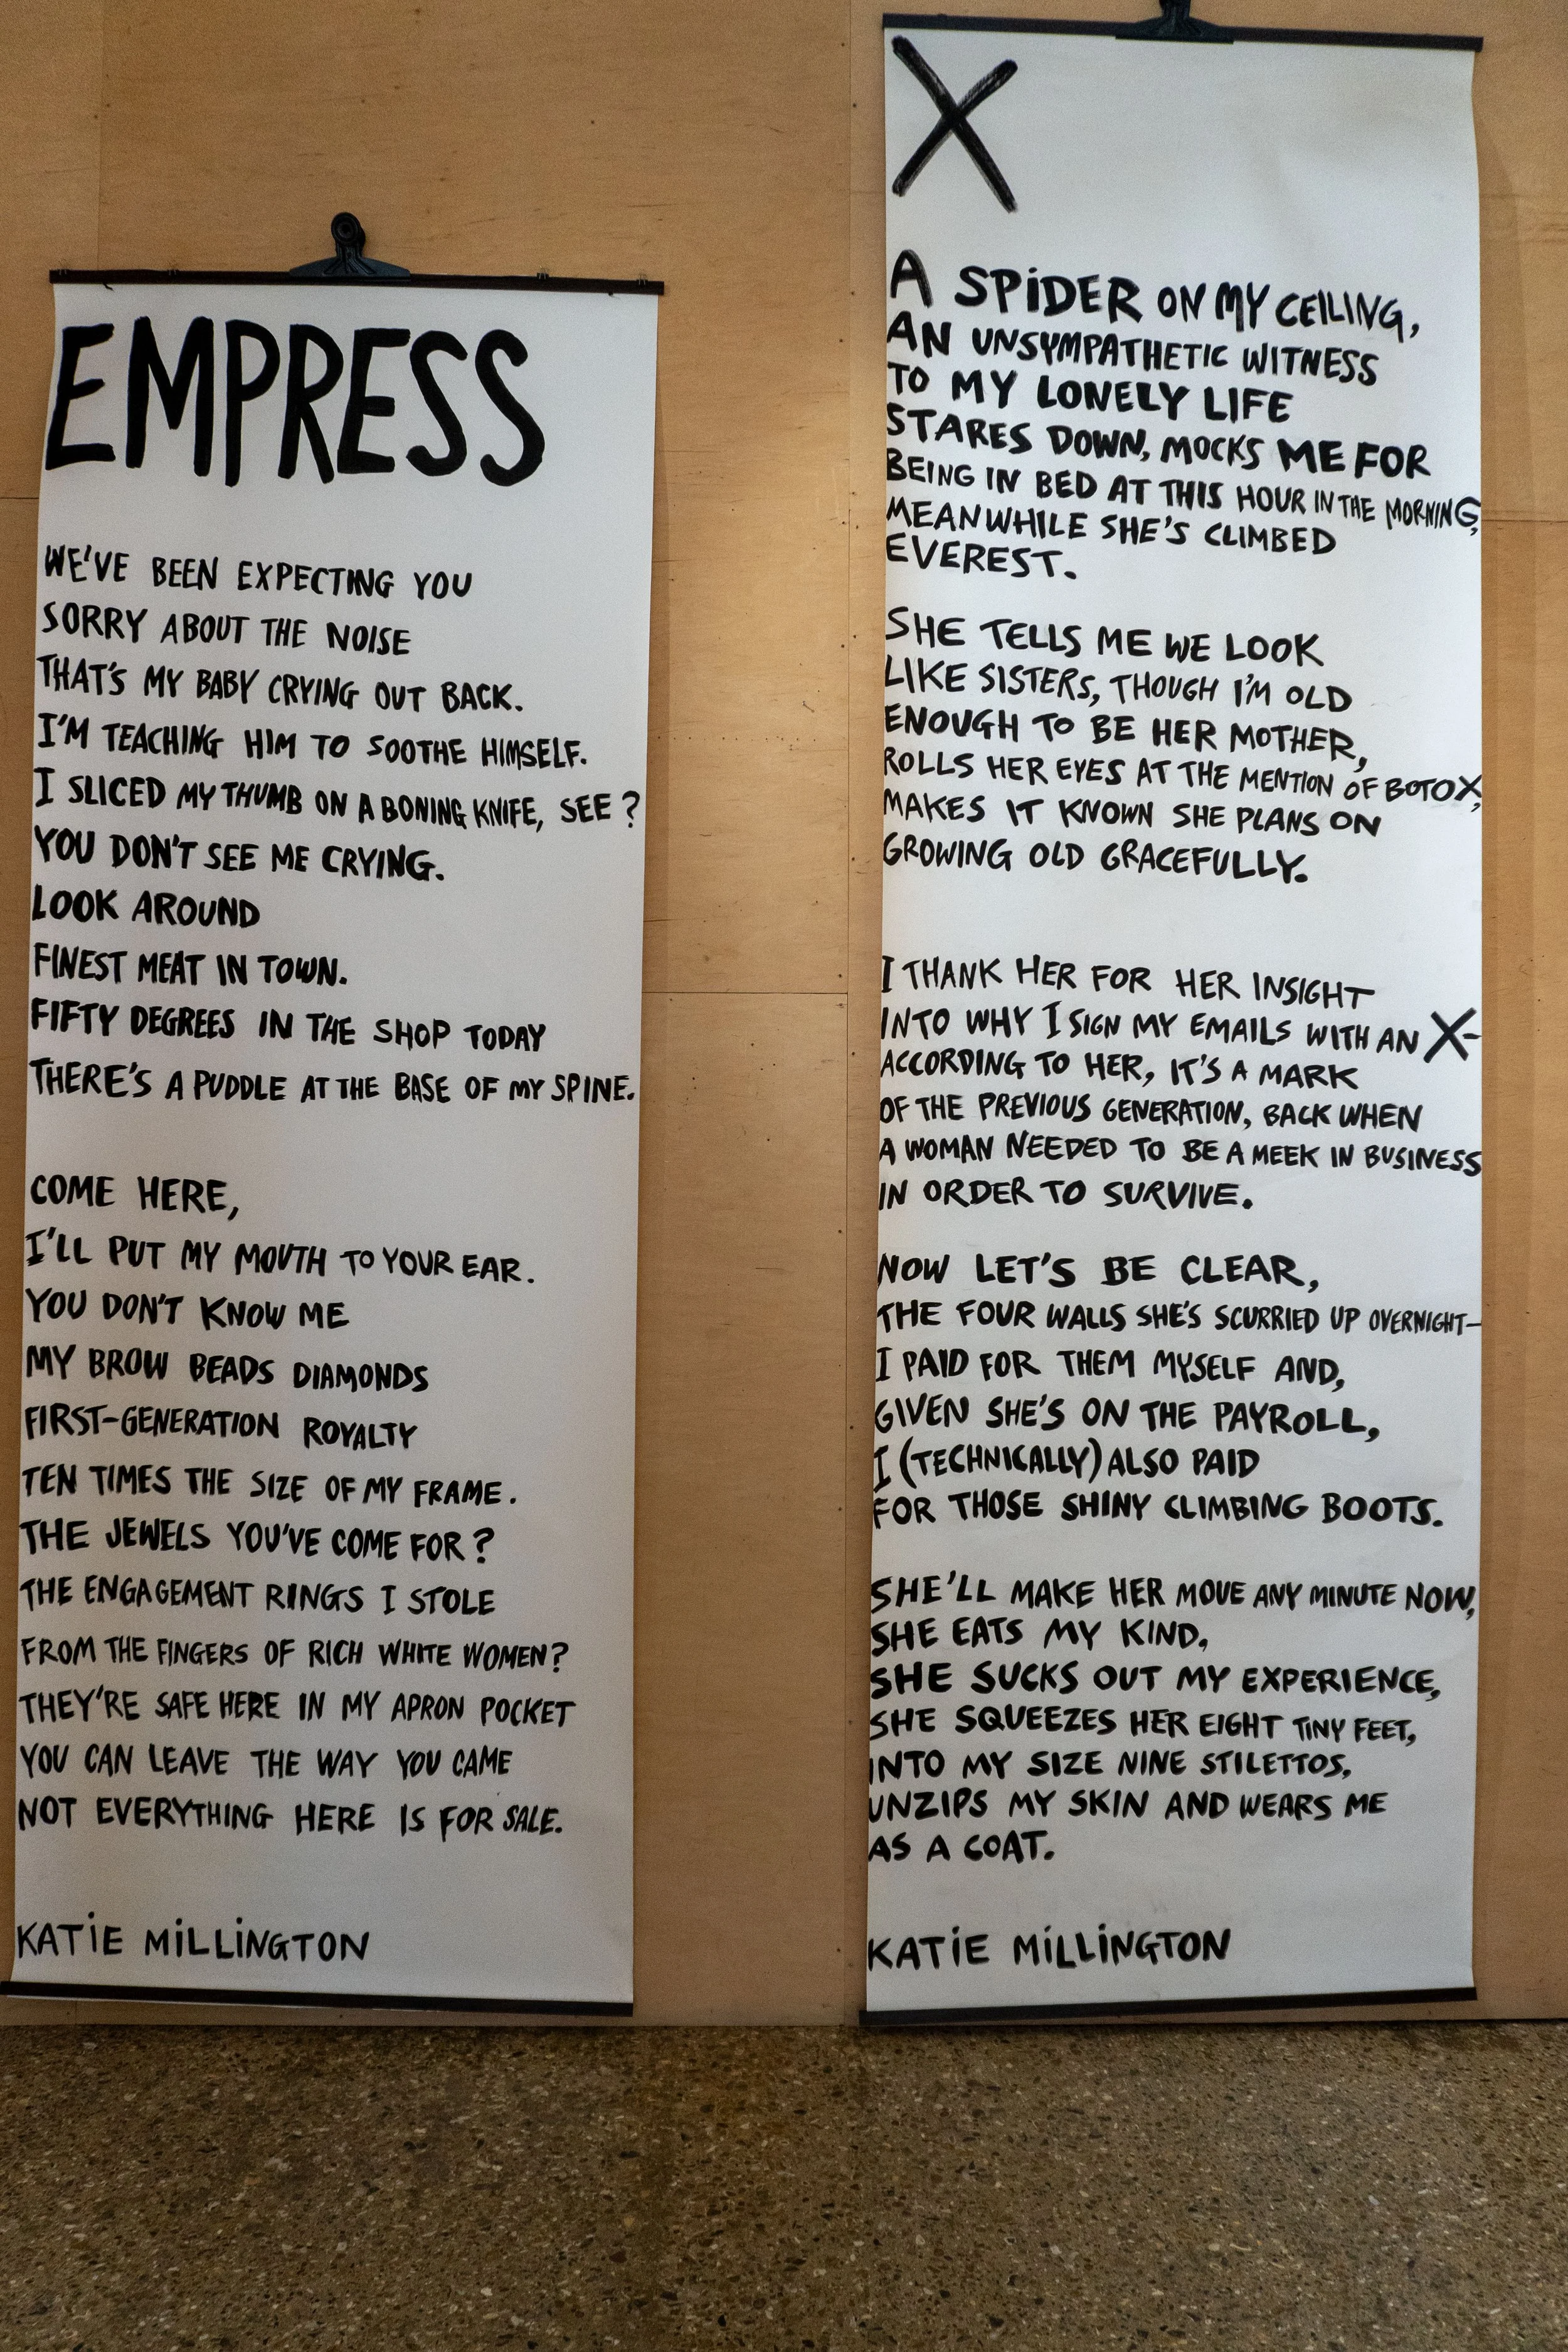 EMPRESS
WE'VE BEEN EXPECTING YOU
SORRY ABOUT THE NOISE
THAT'S MY BABY CRYING OUT BACK.
I'M TEACHING HIM TO SOOTHE HIMSELF.
I SLICED MY THUMB ON A BONING KNIFE, SEE?
YOU DON'T SEE ME CRYING.
LOOK AROUND
FINEST MEAT IN TOWN.
FIFTY DEGREES IN THE SHOP TODAY
THERE'S A PUDDLE AT THE BASE OF MY SPINE.
COME HERE,
I'LL PUT MY MOUTH TO YOUR EAR.
YOU DON'T KNOW ME
MY BROW BEADS DIAMONDS
FIRST-GENERATION ROYALTY
TEN TIMES THE SIZE OF MY FRAME.
THE JEWELS YOU'VE COME FOR?
THE ENGAGEMENT RINGS I STOLE
FROM THE FINGERS OF RICH WHITE WOMEN?
THEY'RE SAFE HERE IN MY APRON POCKET
YOU CAN LEAVE THE WAY YOU CAME
NOT EVERYTHING HERE IS FOR SALE.
KATIE MILLINGTON
X
A SPIDER ON MY CEILING,
AN UNSYMPATHETIC WITNESS
TO MY LONELY LIFE
STARES DOWN, MOCKS ME FOR
BEING IN BED AT THIS HOUR IN THE MORNING,
MEANWHILE SHE'S CLIMBED
EVEREST.
SHE TELLS ME WE LOOK
LIKE SISTERS, THOUGH I'M OLD
ENOUGH TO BE HER MOTHER,
ROLLS HER EYES AT THE MENTION OF BOTOX,
MAKES IT KNOWN SHE PLANS ON
GROWING OLD GRACEFULLY.
I THANK HER FOR HER INSIGHT
INTO WHY I SIGN MY EMAILS WITH AN X-
ACCORDING TO HER, IT'S A MARK
OF THE PREVIOUS GENERATION, BACK WHEN
A WOMAN NEEDED TO BE A MEEK IN BUSINESS
IN ORDER TO SURVIVE.
NOW LET'S BE CLEAR,
THE FOUR WALLS SHE'S SCURRIED UP OVERNIGHT-
I PAID FOR THEM MYSELF AND,
GIVEN SHE'S ON THE PAYROLL,
I (TECHNICALLY) ALSO PAID
FOR THOSE SHINY CLIMBING BOOTS.
SHE'LL MAKE HER MOVE ANY MINUTE NOW,
SHE EATS MY KIND,
SHE SUCKS OUT MY EXPERIENCE,
SHE SQUEEZES HER EIGHT TINY FEET,
INTO MY SIZE NINE STILETTOS,
UNZIPS MY SKIN AND WEARS ME
AS A COAT.
KATIE MILLINGTON